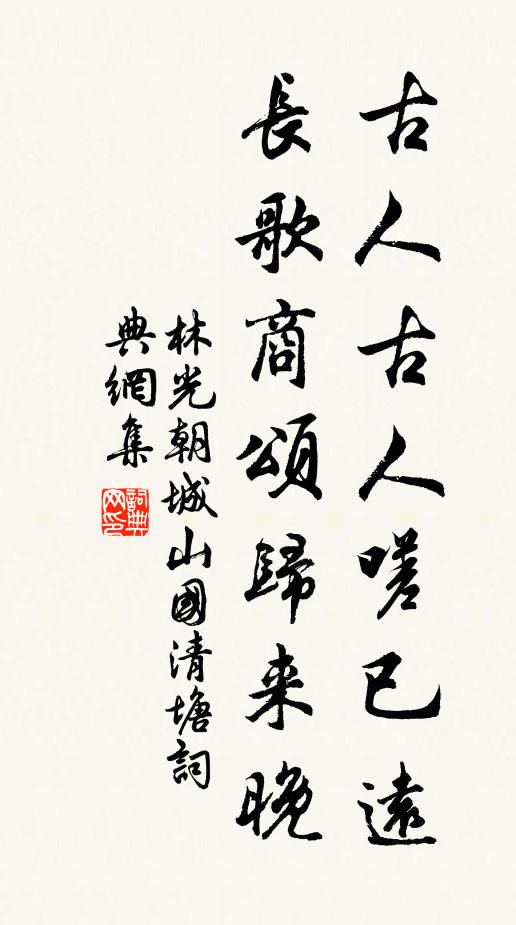 古人古人嗟已遠
長歌商頌歸来晚
林光朝城山國清塘詞
典網集
詞典网印